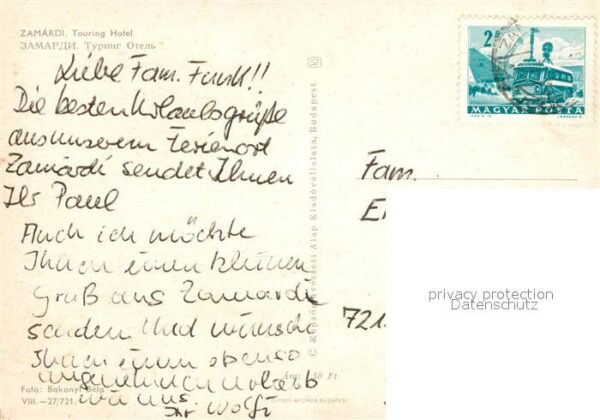 ZAMÁRDI. Touring Hotel
ЗАМАРДИ. Туринг Отель
Liebe Fam. Funk!!
Die besten Urlaubsgrüße
aus unserem Ferienort
Zamardi sendet Ihnen
Ihr Paul
Auch ich möchte
Ihnen einen kleinen
Gruß aus Zamardi
senden Und wünsche
Ihnen einen ebenso
angenehmen Urlaub
wie uns.
Ihr Wolfi
Foto: Bakonyi Béla
VIII.—27/721
Ára: 50 Ft
OFFSET-NYOMDA, BUDAPEST
© Képzőművészeti Alap Kiadóvállalata, Budapest
2
MAGYAR POSTA
Fam.
721
privacy protection
Datenschutz